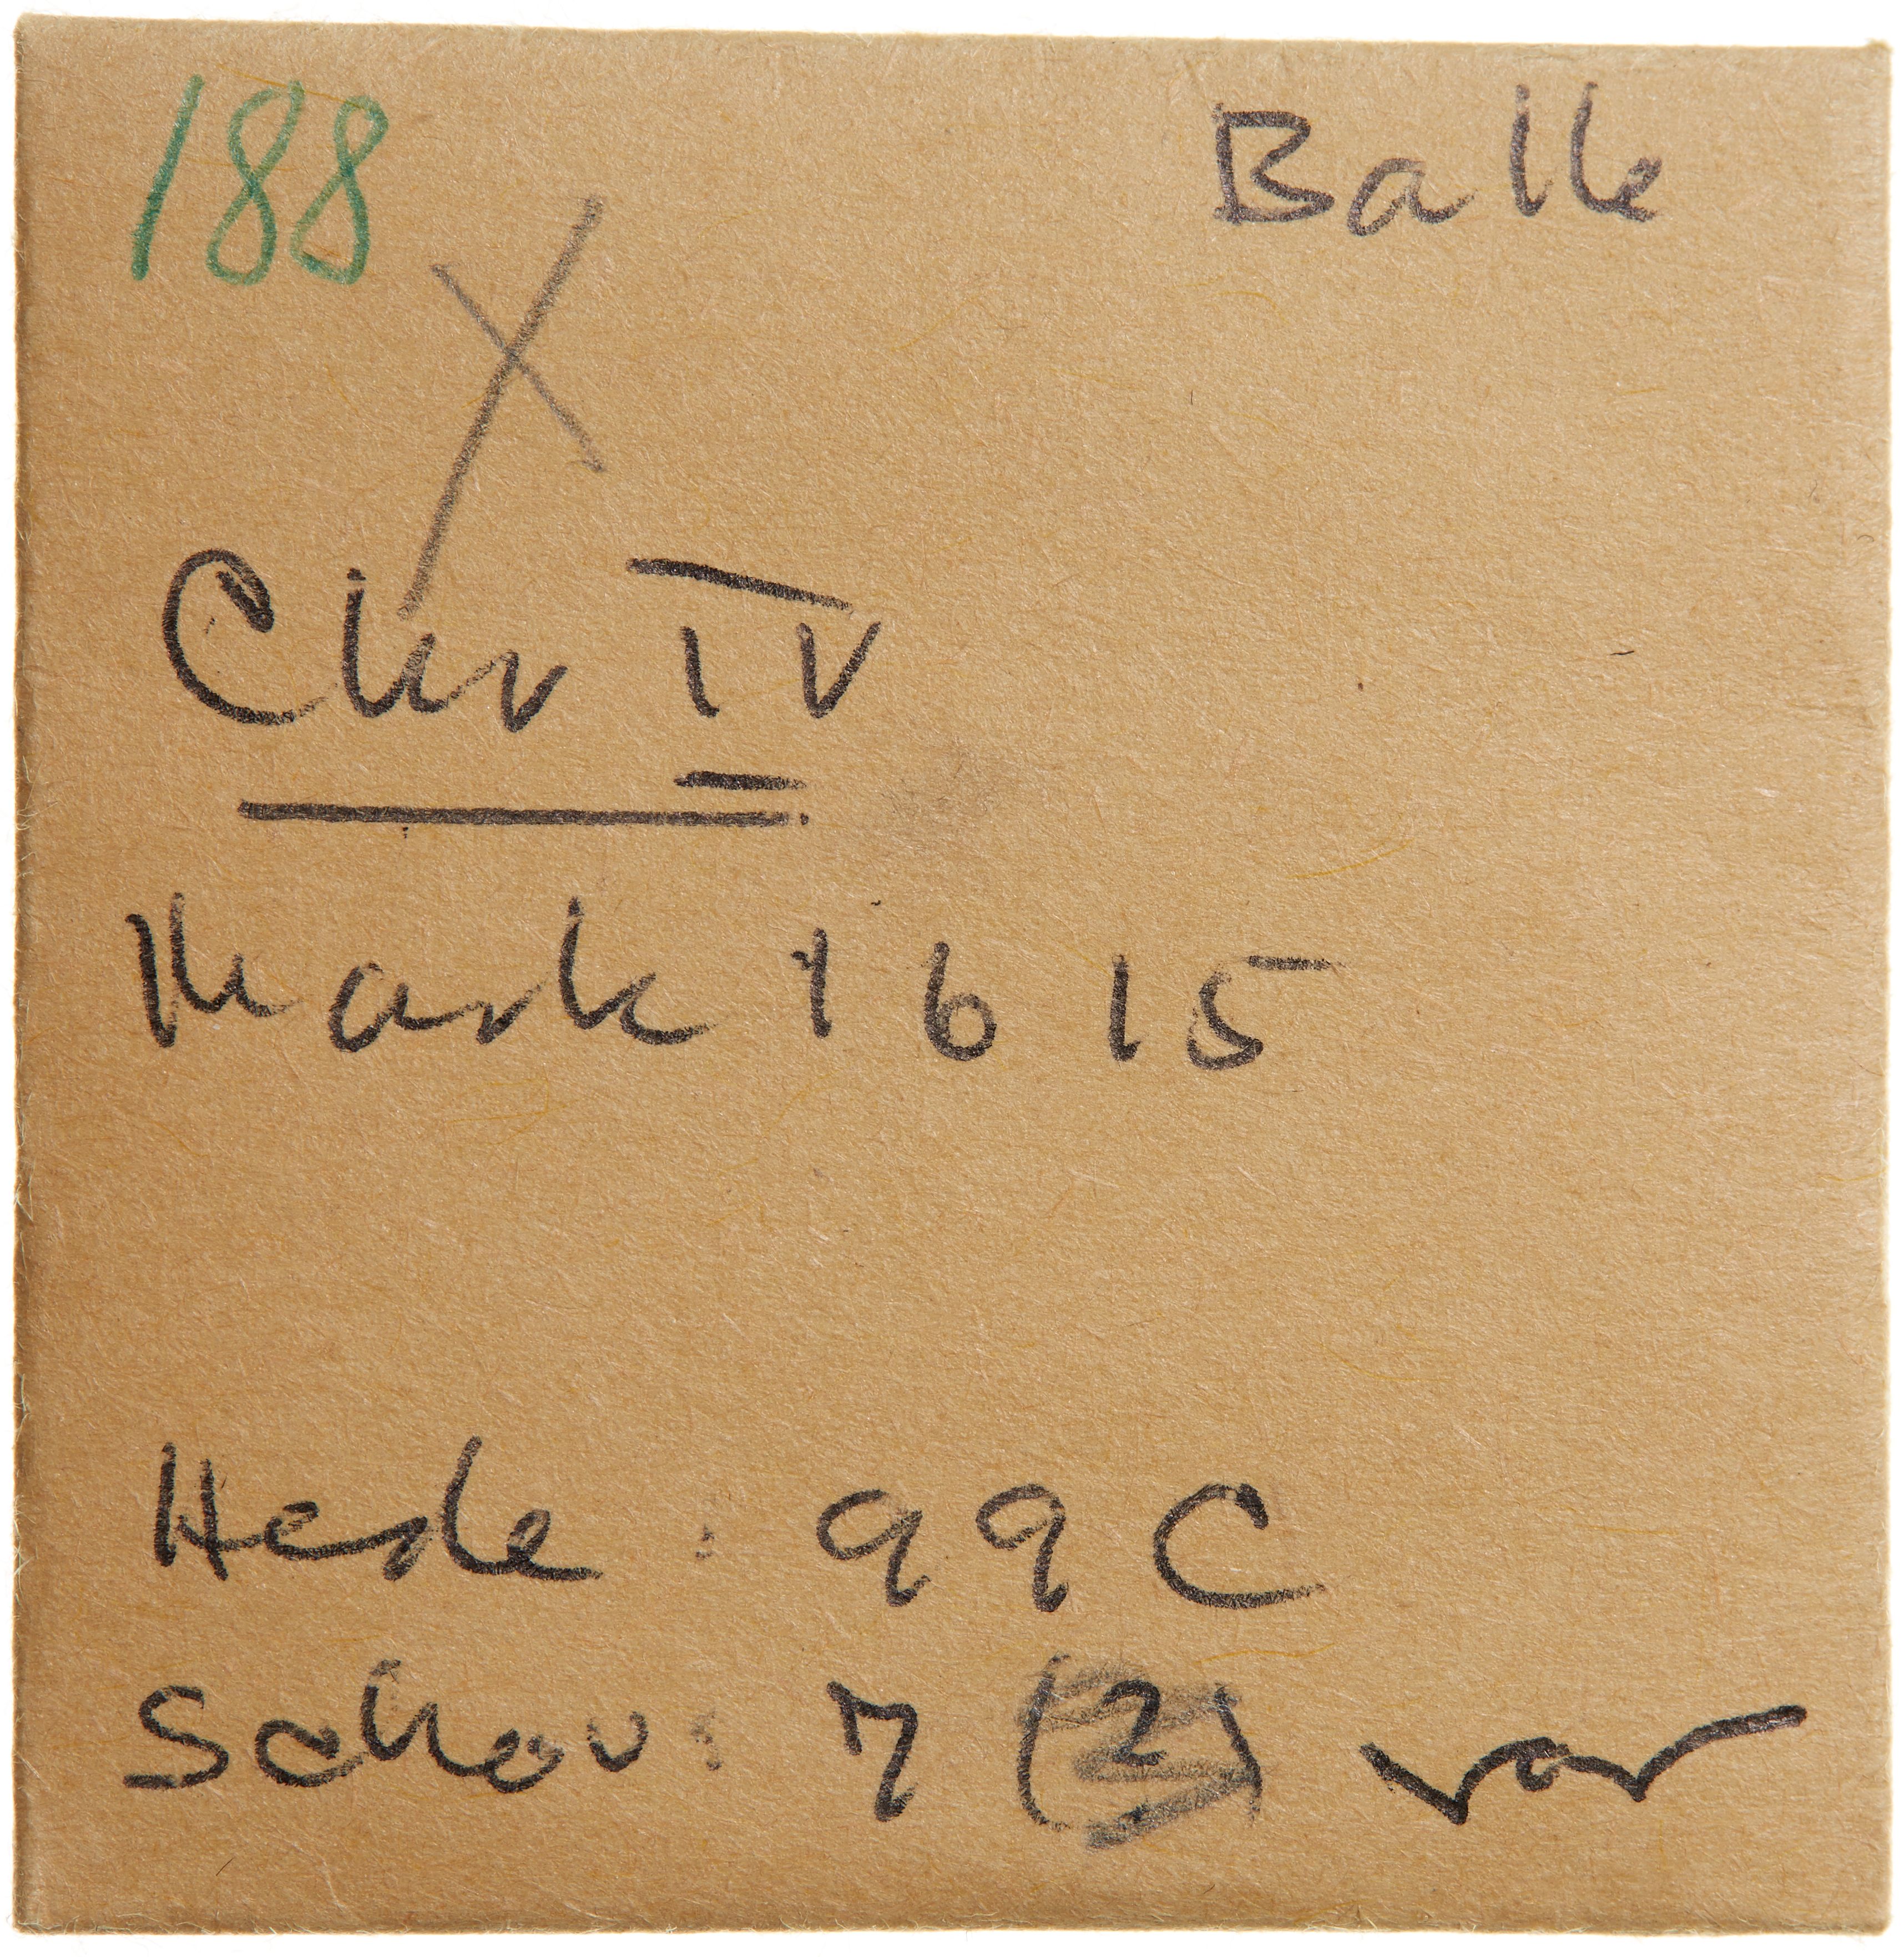 188 Balle
X
Chr IV
Mark 1615
Hede : 99 C
Schou : 7 (2) var